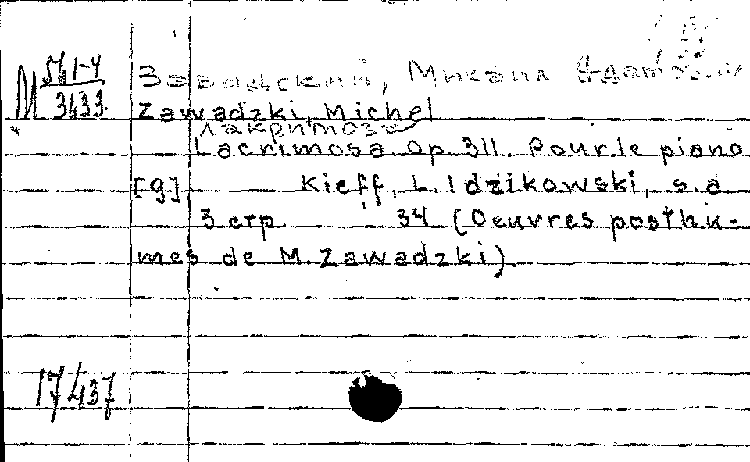 М 561-4
3433
Завадский, Михаил Адамович
Zawadzki, Michel
Лакримоза
Lacrimosa. Op. 311. Pour le piano
[9] Kieff, L. Idzikowski, s.a
3 стр. 34 (Oeuvres posthu-
mes de M. Zawadzki).
17437